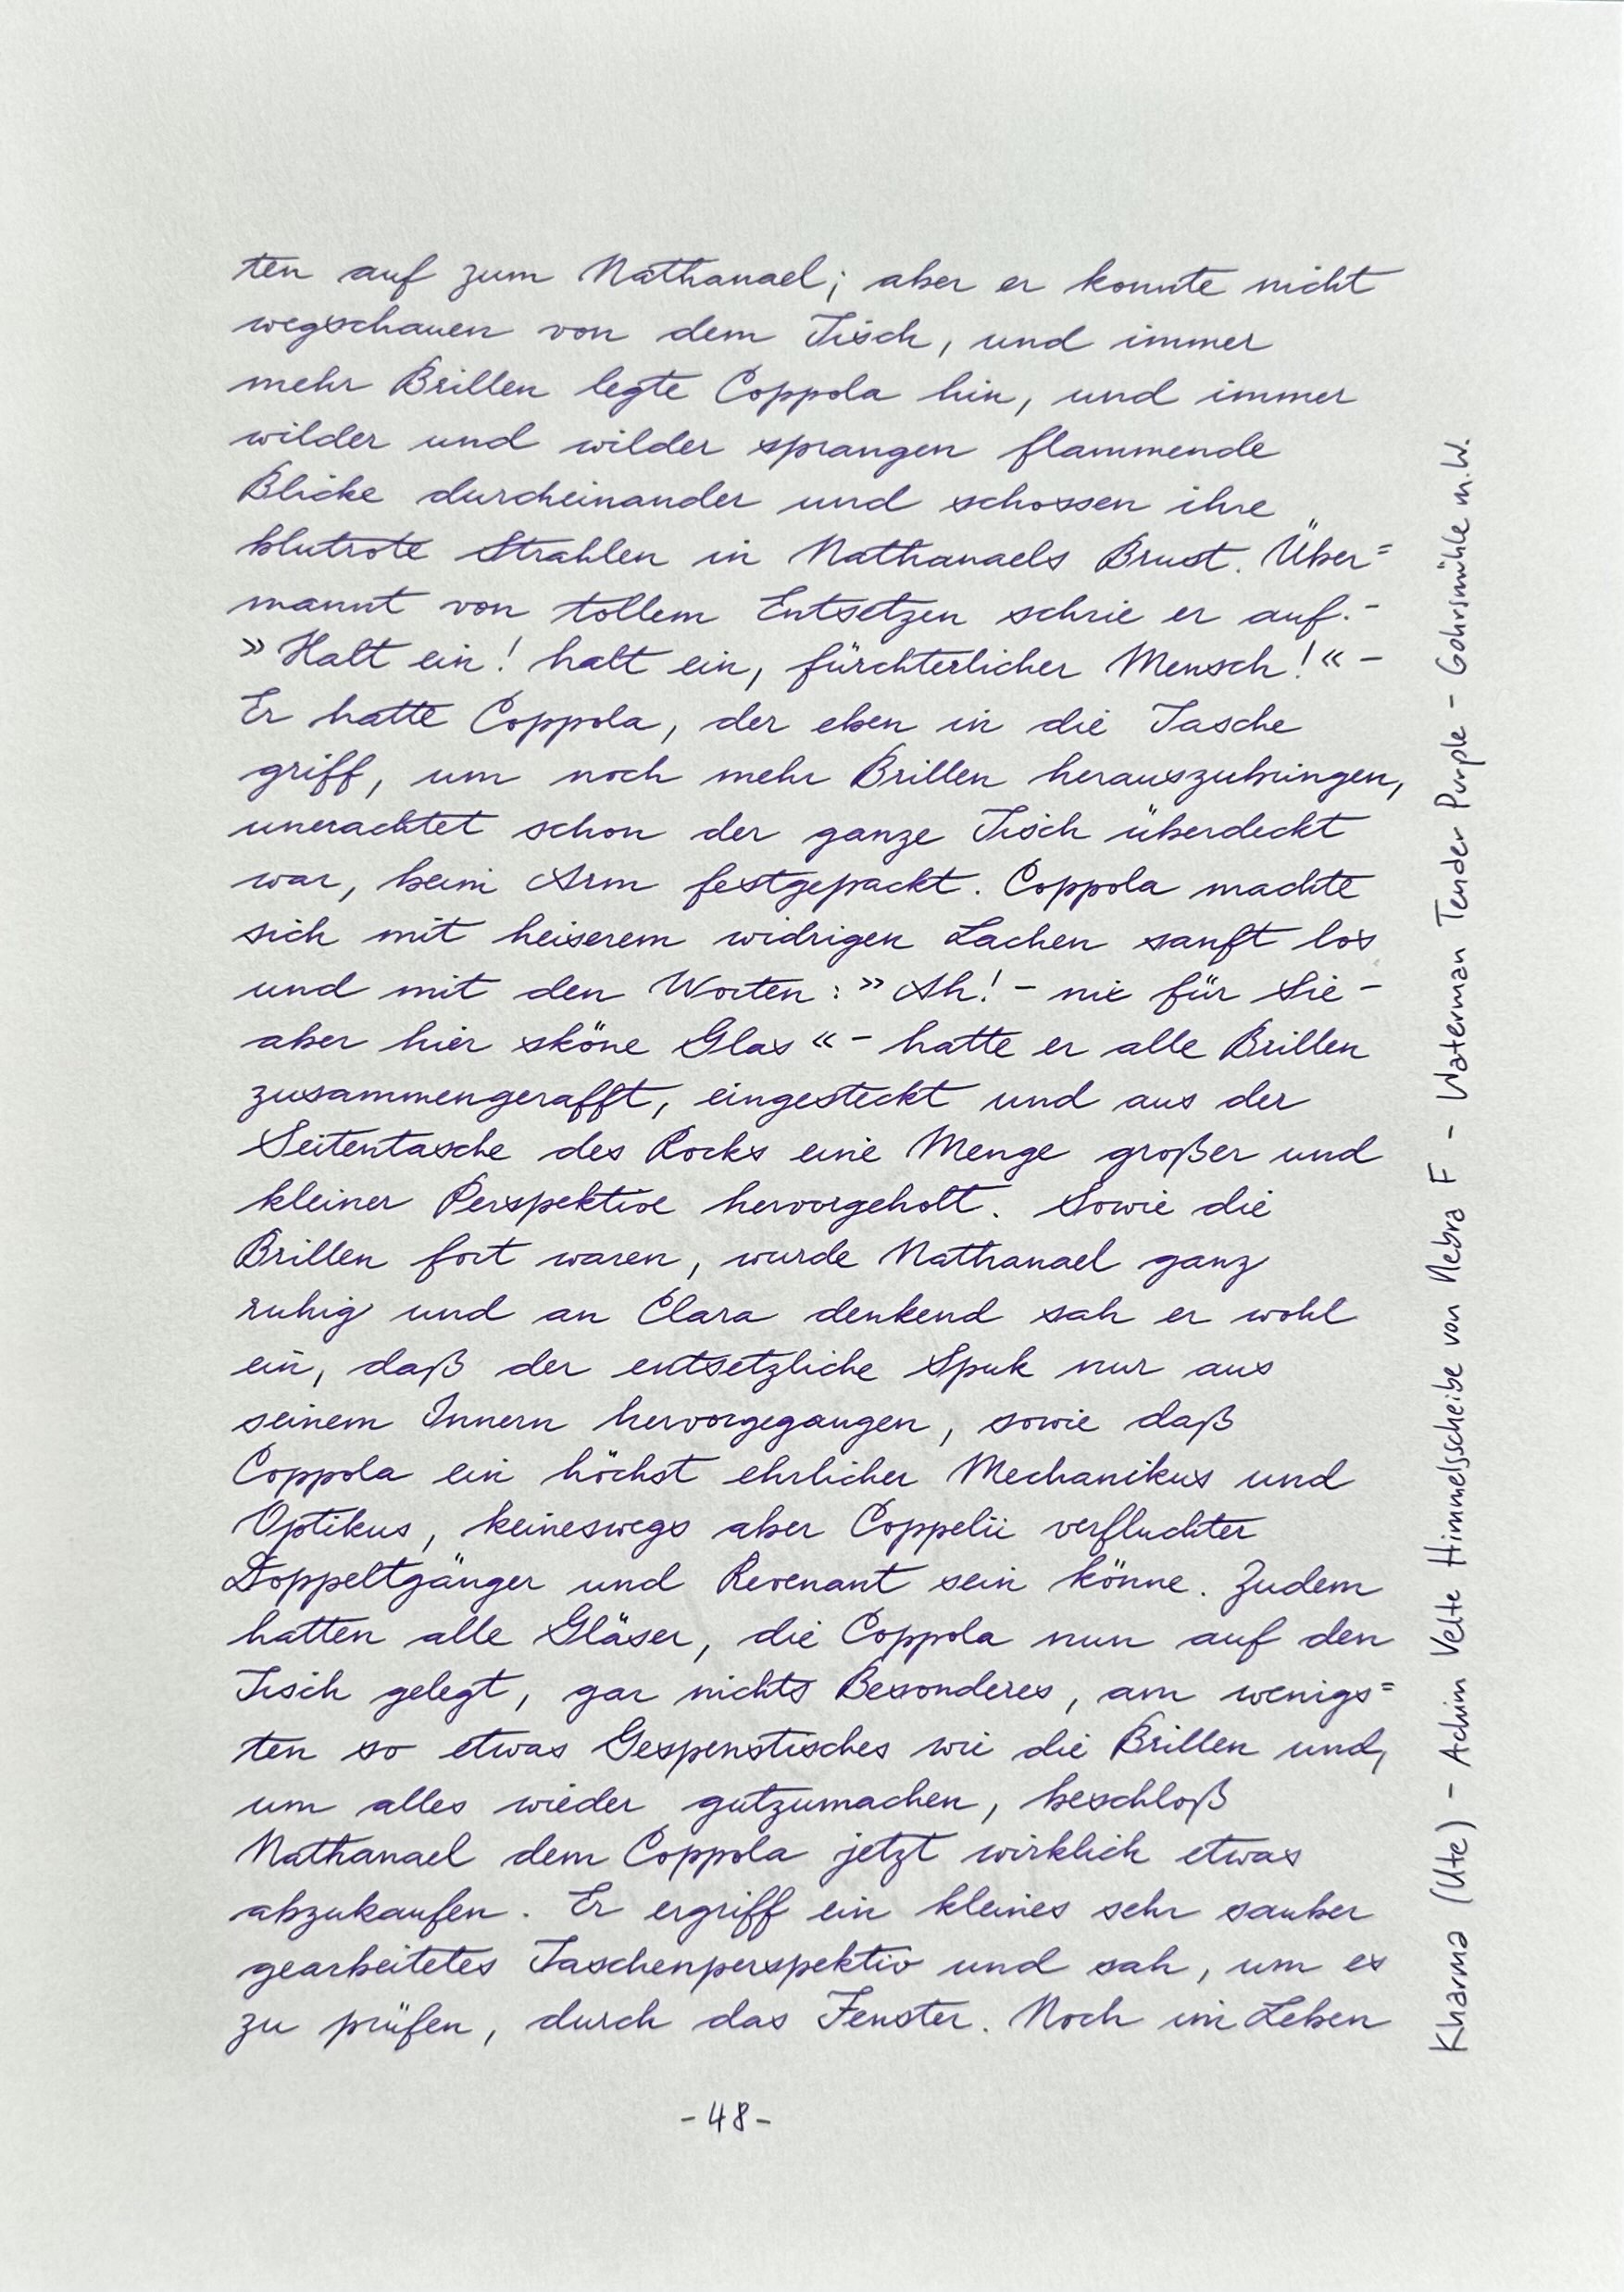 ten auf zum Nathanael; aber er konnte nicht
wegschauen von dem Tisch, und immer
mehr Brillen legte Coppola hin, und immer
wilder und wilder sprangen flammende
Blicke durcheinander und schossen ihre
blutrote Strahlen in Nathanaels Brust. Über=
mannt von tollem Entsetzen schrie er auf.-
»Halt ein! halt ein, fürchterlicher Mensch!« -
Er hatte Coppola, der eben in die Tasche
griff, um noch mehr Brillen herauszubringen,
unerachtet schon der ganze Tisch überdeckt
war, beim Arm festgepackt. Coppola machte
sich mit heiserem widrigen Lachen sanft los
und mit den Worten: »Ah! - nix für Sie -
aber hier sköne Glas« - hatte er alle Brillen
zusammengerafft, eingesteckt und aus der
Seitentasche des Rocks eine Menge großer und
kleiner Perspektive hervorgeholt. Sowie die
Brillen fort waren, wurde Nathanael ganz
ruhig und an Clara denkend sah er wohl
ein, daß der entsetzliche Spuk nur aus
seinem Innern hervorgegangen, sowie daß
Coppola ein höchst ehrlicher Mechanikus und
Optikus, keineswegs aber Coppelii verfluchter
Doppeltgänger und Revenant sein könne. Zudem
hatten alle Gläser, die Coppola nun auf den
Tisch gelegt, gar nichts Besonderes, am wenigs=
ten so etwas Gespenstisches wie die Brillen und,
um alles wieder gutzumachen, beschloß
Nathanael dem Coppola jetzt wirklich etwas
abzukaufen. Er ergriff ein kleines sehr sauber
gearbeitetes Taschenperspektiv und sah, um es
zu prüfen, durch das Fenster. Noch im Leben
-48-
Kharma (Ute) - Achim Velte Himmelsscheibe von Nebra F - Waterman Tender Purple - Gohrsmühle m.W.